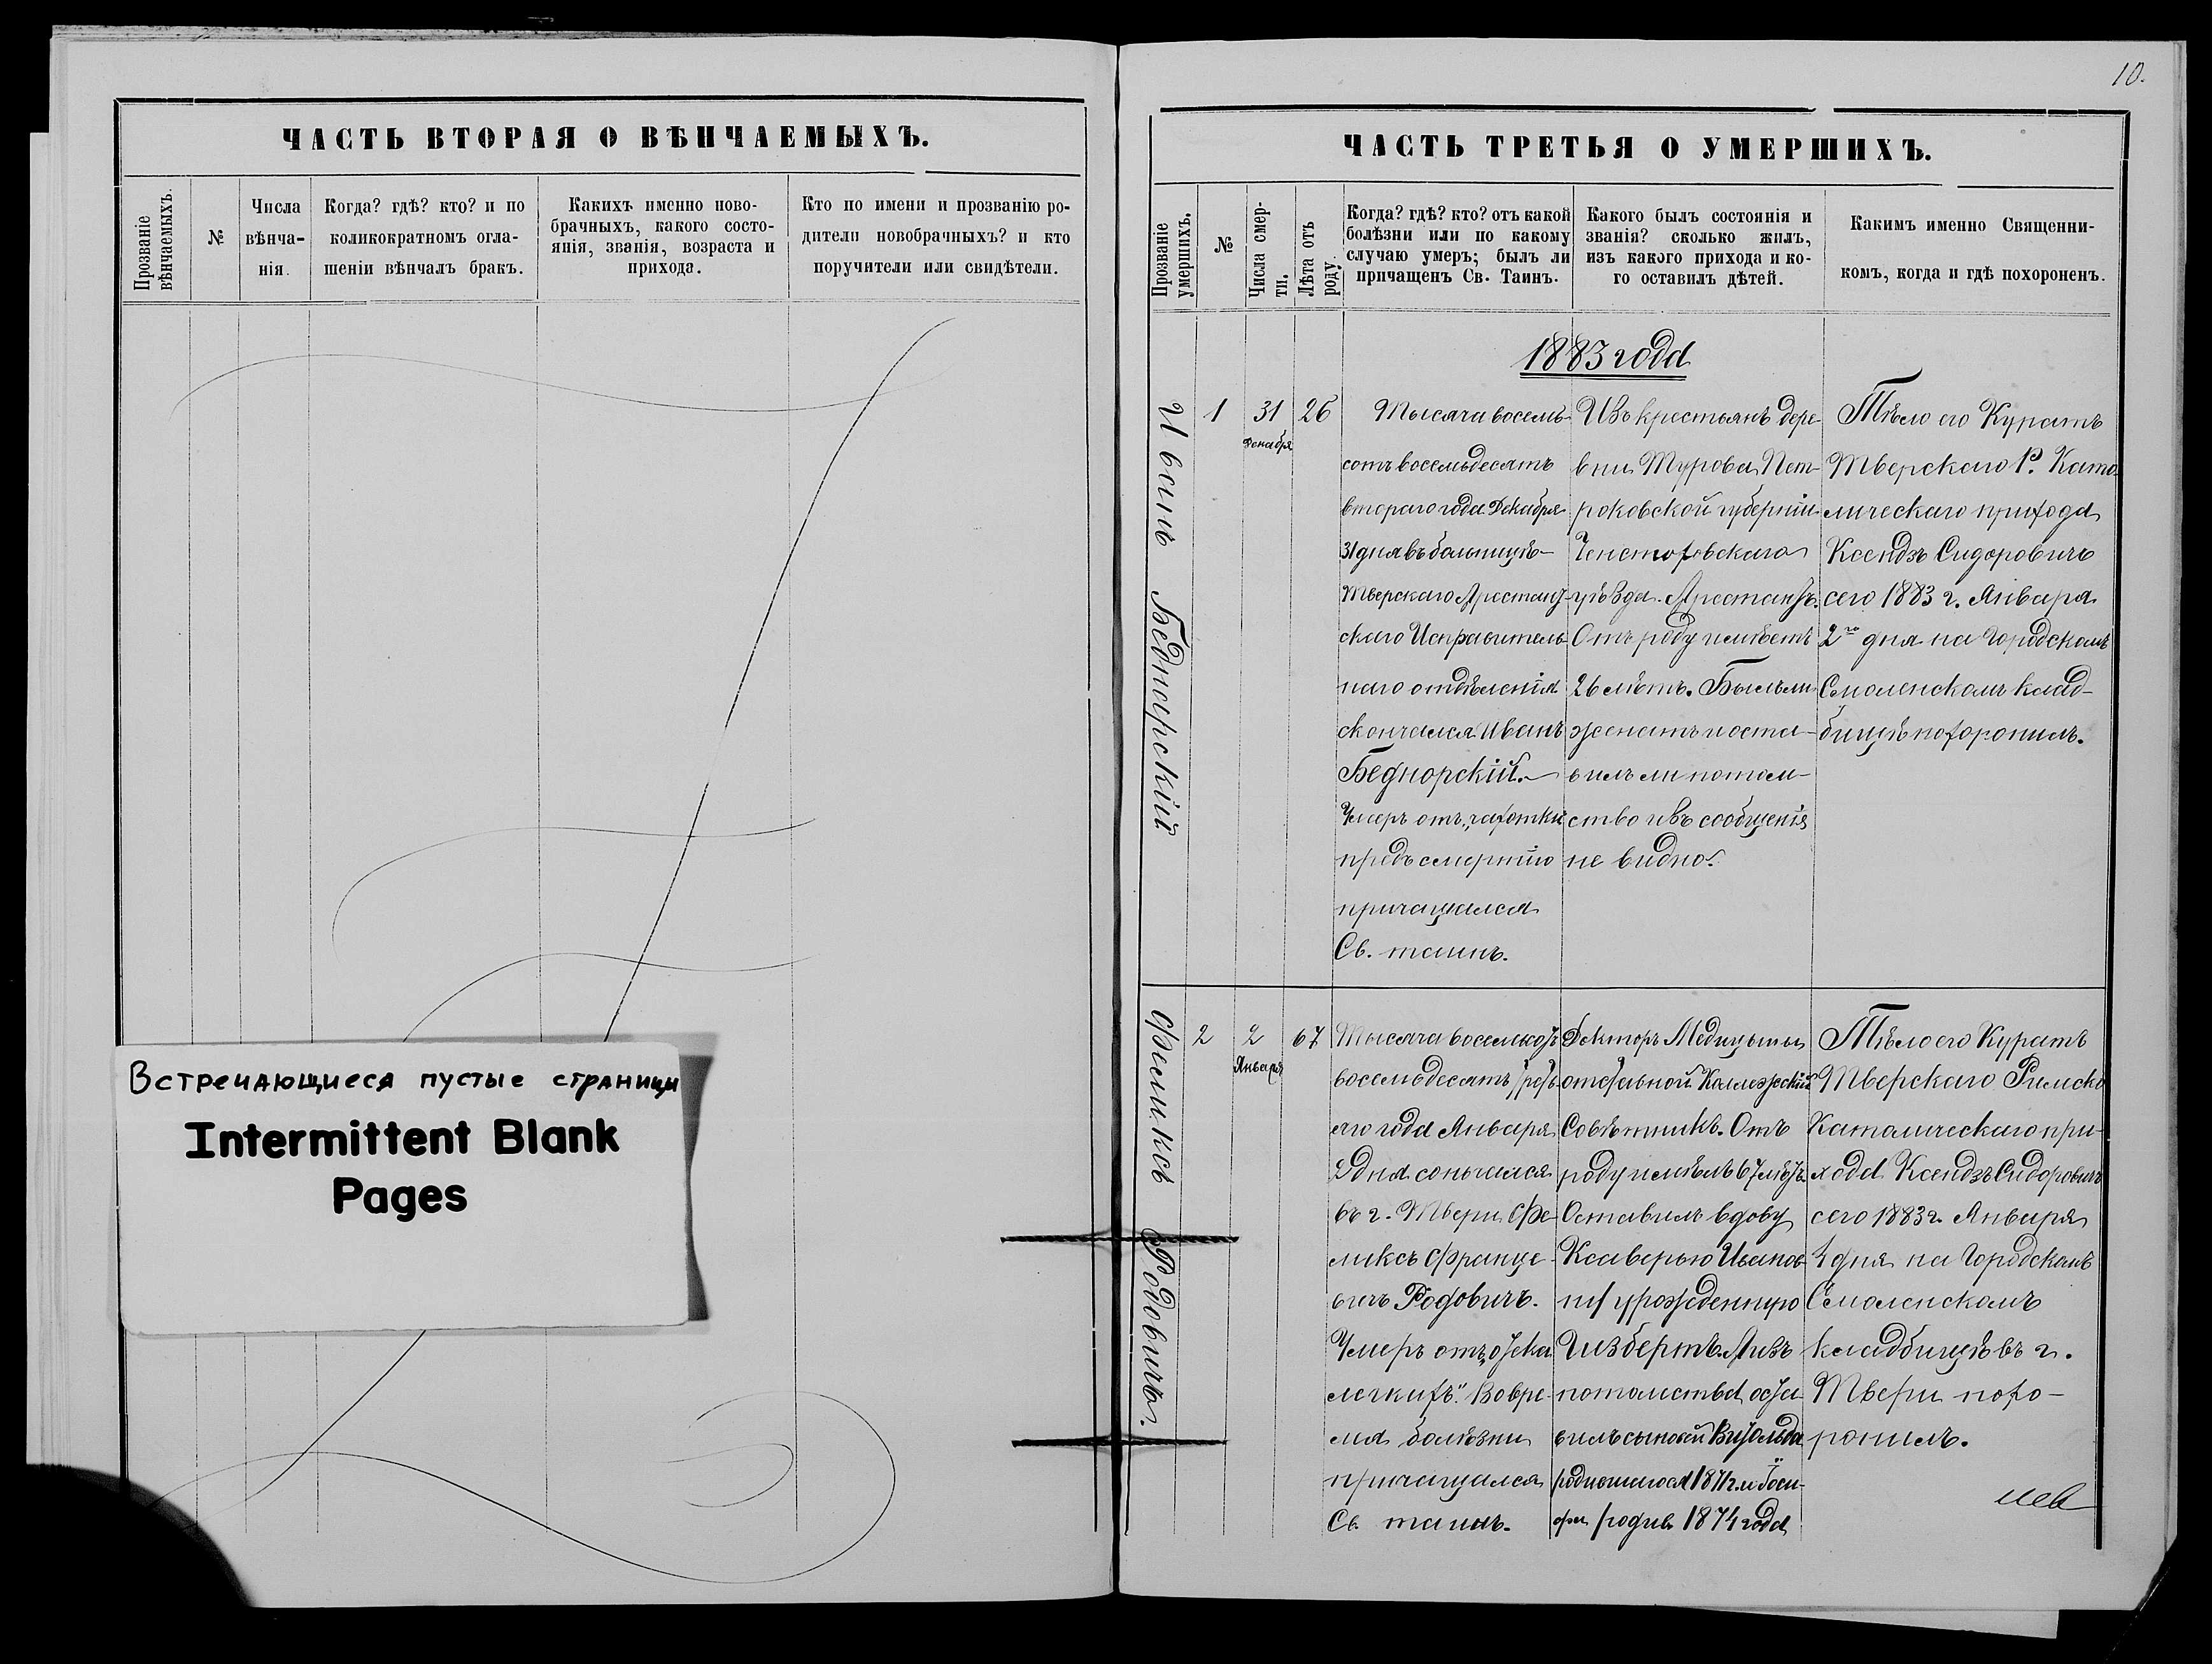 10.
ЧАСТЬ ВТОРАЯ О ВѢНЧАЕМЫХЪ.
Прозваніе
вѣнчаемыхъ.
№
Числа
вѣнча-
нія.
Когда? гдѣ? кто? и по
коликократномъ огла-
шеніи вѣнчалъ бракъ.
Какихъ именно ново-
брачныхъ, какого состо-
янія, званія, возраста и
прихода.
Кто по имени и прозванію ро-
дители новобрачныхъ? и кто
поручители или свидѣтели.
Встречающиеся пустые страници
Intermittent Blank
Pages
ЧАСТЬ ТРЕТЬЯ О УМЕРШИХЪ.
Прозваніе
умершихъ.
№
Числа смер-
ти.
Лѣта отъ
роду.
Когда? гдѣ? кто? отъ какой
болѣзни или по какому
случаю умеръ; былъ ли
причащенъ Св. Таинъ.
Какого былъ состоянія и
званія? сколько жилъ,
изъ какого прихода и ко-
го оставилъ дѣтей.
Какимъ именно Священни-
комъ, когда и гдѣ похороненъ.
1883 года
Иванъ Беднарскій
1
31
Декабря
26
Тысяча восемь-
сотъ восемьдесятъ
втораго года Декабря
31 дня въ больницѣ
Тверскаго Арестант-
скаго Исправитель-
наго отдѣленія
скончался Иванъ
Беднорскій.
Умеръ отъ „чахотки
предъ смертію
причащался
Св. таинъ.
Изъ крестьянъ дере-
вни Турова Пет-
роковской губерніи
Ченстоховскаго
уѣзда. Арестантъ.
Отъ роду имѣетъ
26 лѣтъ. Былъ ли
женатъ и оста-
вилъ ли потом-
ство изъ сообщенія
не видно.
Тѣло его Куратъ
Тверскаго Р. Като-
лическаго прихода
Ксендзъ Сидоровичъ
сего 1883 г. Января
2го дня на Городскомъ
Смоленскомъ клад-
бищѣ похоронилъ.
Феликсъ Родовичъ.
2
2
Января
67
Тысяча восемьсотъ
восемьдесятъ треть-
яго года Января
2 дня скончался
въ г. Твери Фе-
ликсъ Францe-
вичъ Родовичъ.
Умеръ отъ „отека
легкихъ". Во вре-
мя болѣзни
причащался
Св. таинъ.
Докторъ Медицыны
отставной Коллежскій
Совѣтникъ. Отъ
роду имѣлъ 67 лѣтъ.
Оставилъ вдову
Ксаверью Иванов-
ну урожденную
Гизбертъ. А изъ
потомства оста-
вилъ сыновей Витольда
родившагося 1871 г. и Іоси-
фа родив. 1874 года
Тѣло его Куратъ
Тверскаго Римско
Католическаго при-
хода Ксендзъ Сидоровичъ
сего 1883 г. Января
дня на Городскомъ
Смоленскомъ
кладбищѣ въ г.
Твери похо-
ронилъ.